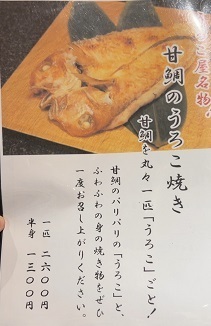 屋名物!
甘鯛のうろこ焼き
甘鯛を丸々一匹「うろこ」ごと!
甘鯛のパリパリの「うろこ」と、
ふわふわの身の焼き物をぜひ
一度お召し上がりください。
一匹 二六〇〇円
半身 一三〇〇円